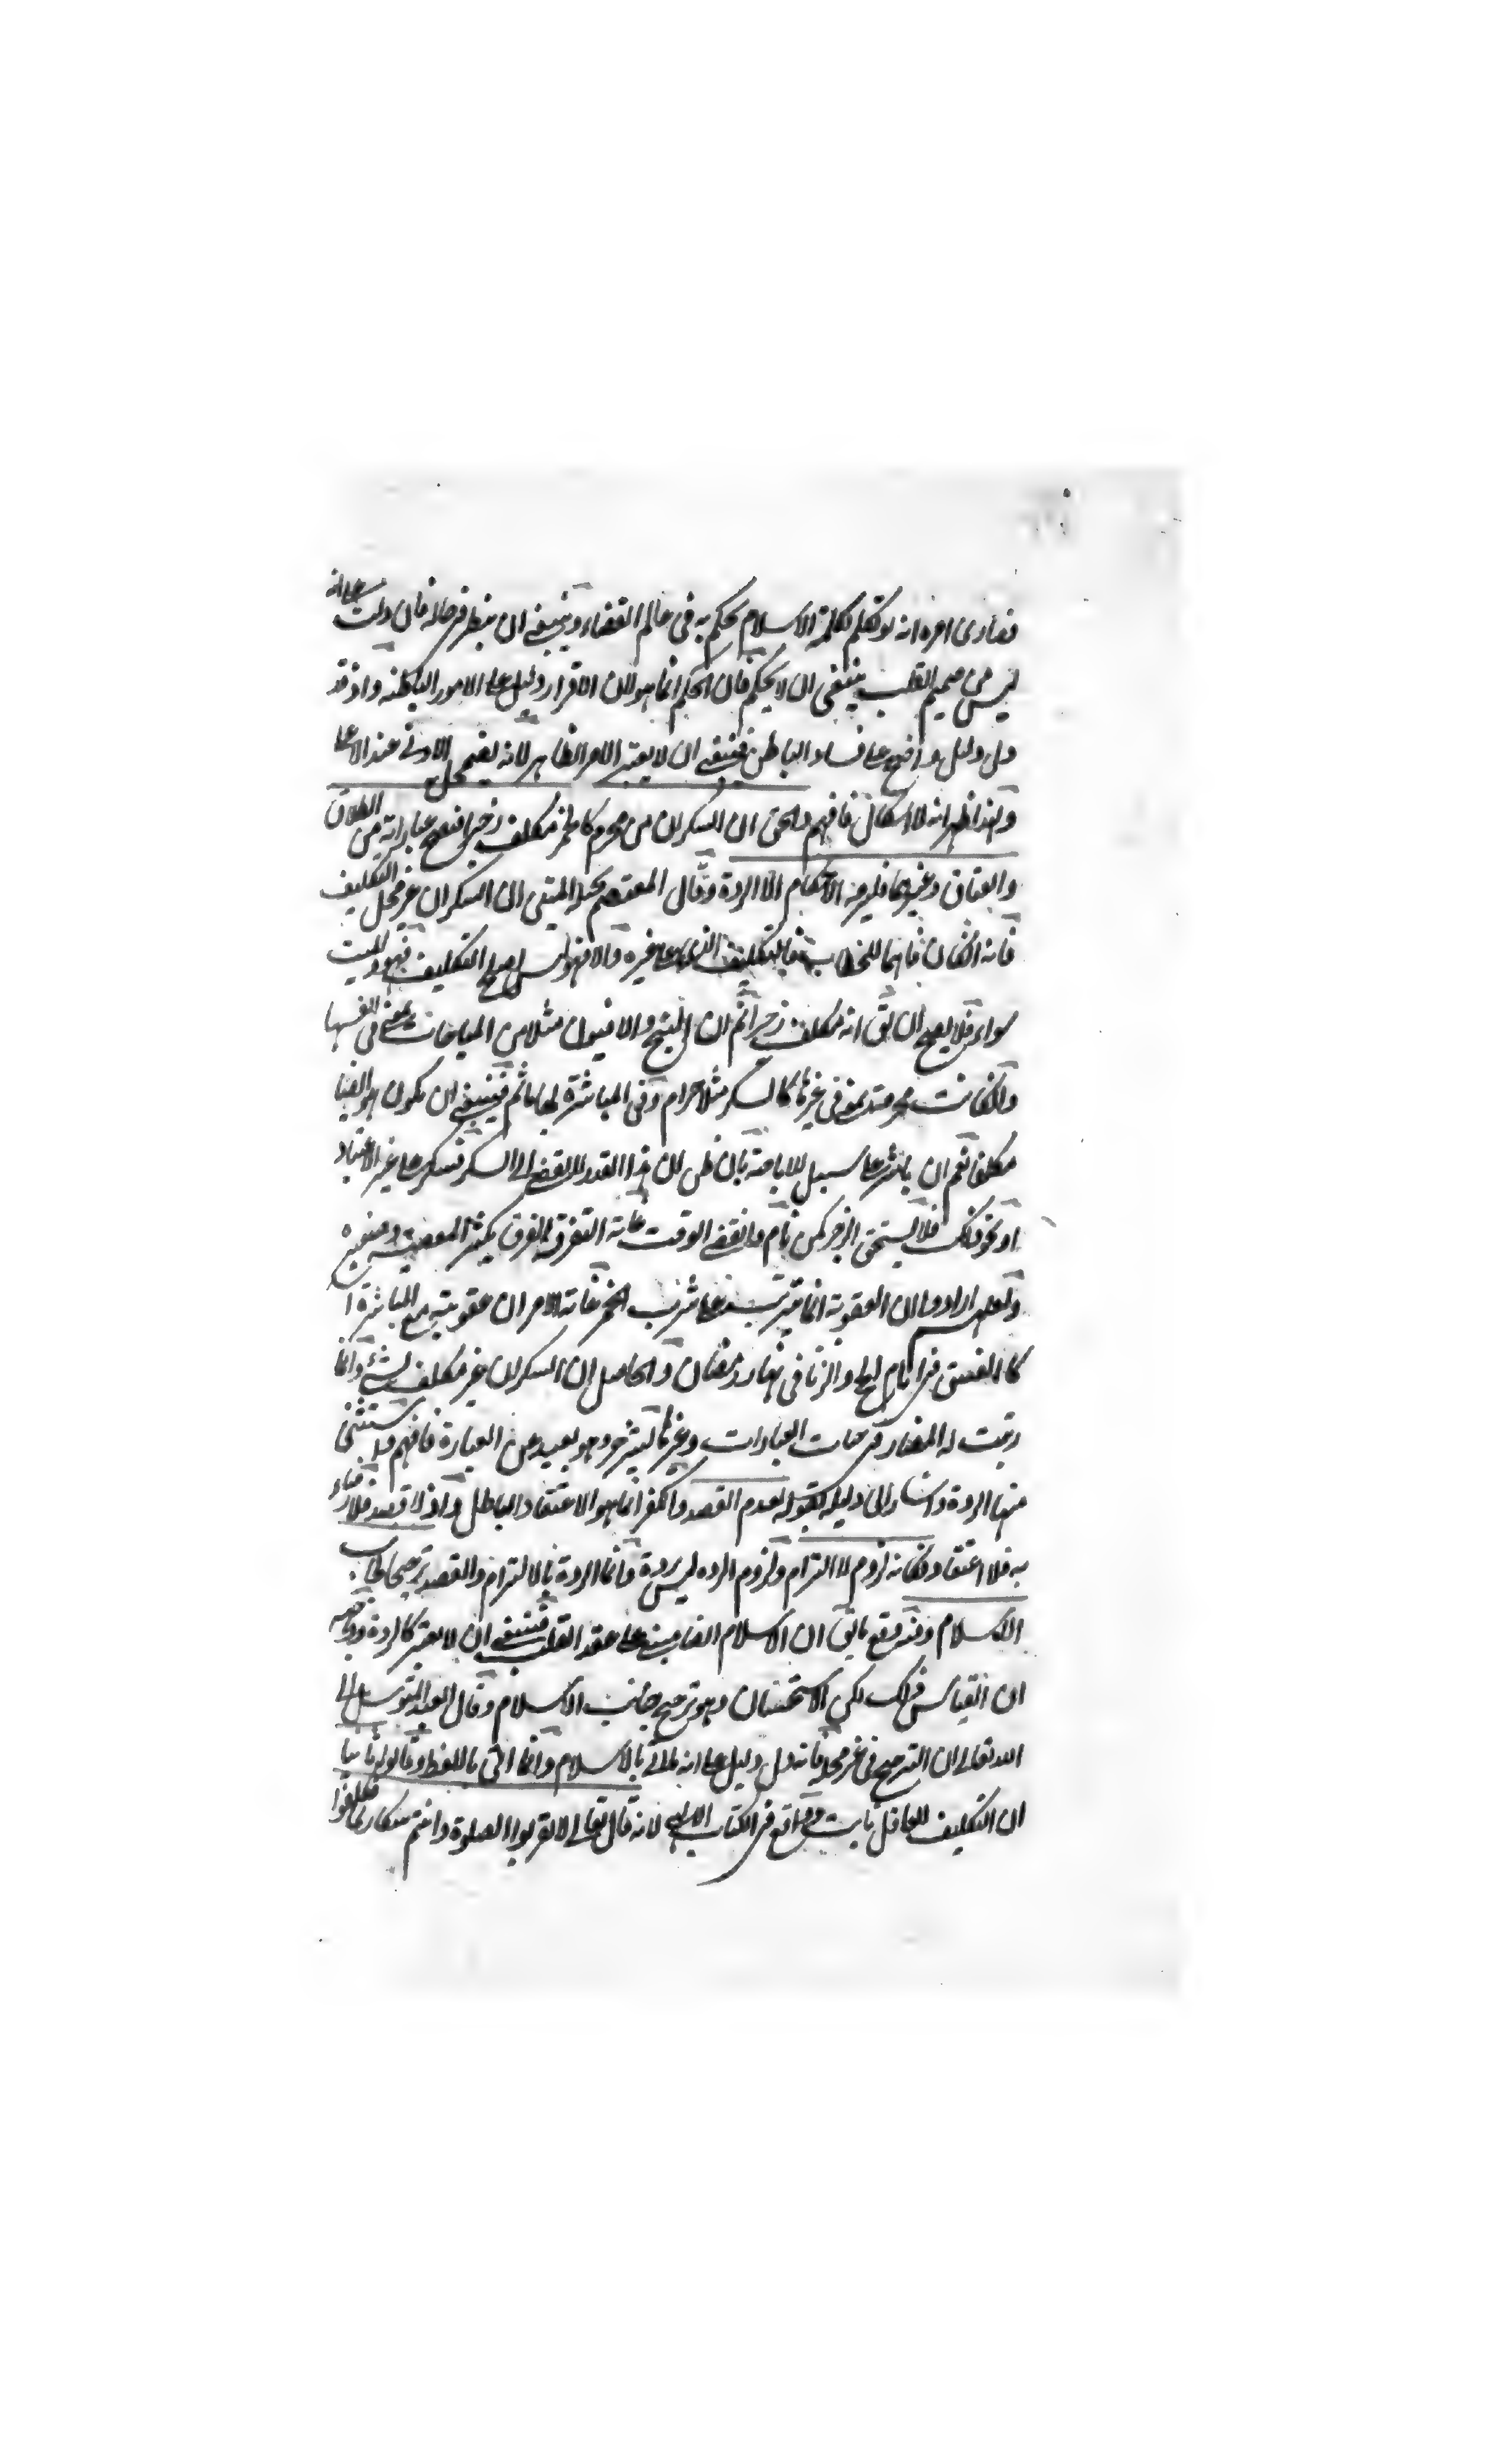 قصارى امره انه لو تكلم بكلمة الاسلام يحكم به فى عالم القضاء وينبغى ان ينظر فى حاله فان دلت على انه
ليس من صميم القلب ينبغى ان لا يحكم فان الحكم انما هو لان الاقرار دليل على الامور الباطنه واذ قد
دل دليل واضح على فساد الباطن فينبغى ان لا يعتبر الامر الظاهر لانه يضمحل الادنى عند الاعلى
وبهذا ظهر انه لا اشكال فافهم والحق ان السكران من محرم كالخمر مكلف زجرا فتصح عباراته من الطلاق
والعتاق وغيرهما فيلزمه الاحكام الا الردة وقال المعتصم بحبله المتين ان السكران غير محل التكليف
فانه ان كان فاهما للخطاب فالتكليف الذى على غيره والا فهو ليس اهل التكليف فهو والميت
سواء فلا يصح ان يق انه مكلف زجرا ثم ان البنج والافيون مثلا من المباحات لمعنى فى انفسها
وان كانت محرمة لمعنى فى غيرها كالسكر مثلا حرام وفى المباشرة لها ماثم فينبغى ان يكون هو ايضا
مكلفا نعم ان باشر على سبيل الاباحة بان ظن ان هذا القدر لا يفضى الى السكر فسكر على غير الاعتياد
او نحو ذلك فلا يستحق الزجر كمن نام وانقضى الوقت غاية التفرقة الفرق بكثرة المعصية
ولعلهم ارادوا ان العقوبة انما تترتب على شرب الخمر غاية الامر ان عقوبته مع المباشرة ا
كالفسق فى ايام الحج والزنا فى نهار رمضان والحاصل ان السكران غير مكلف بشئ وانما
رتبت له المضار فى العبادات وغيرها وهو بعيد عن العبارة فافهم واستثنى
منها الردة واشار الى دليله بقوله لعدم القصد والكفر انما هو الاعتقاد الباطل واذ لا قصد فلا رضاء
به فلا اعتقاد فكانه لزوم لا التزام ولزوم الرده ليس ردة وانما الردة بالالتزام والقصد ترجيحا لجانب
الاسلام وقد يق ان الاسلام ايضا مبنى على عقد القلب فينبغى ان لا يعتبر كالردة
ان القياس ذلك لكن الاستحسان وهو ترجيح جانب الاسلام وقال العبد المتوسل الى
الله تعالى ان الترجيح فى غير محله فانه دل دليل على انه لم يات بالاسلام وانما اتى باللفظ وقالوا ثانيا
ان التكليف للغافل ثابت وواقع فى الكتاب الالهى لانه قال تعالى لا تقربوا الصلوة وانتم سكارى فكلفوا